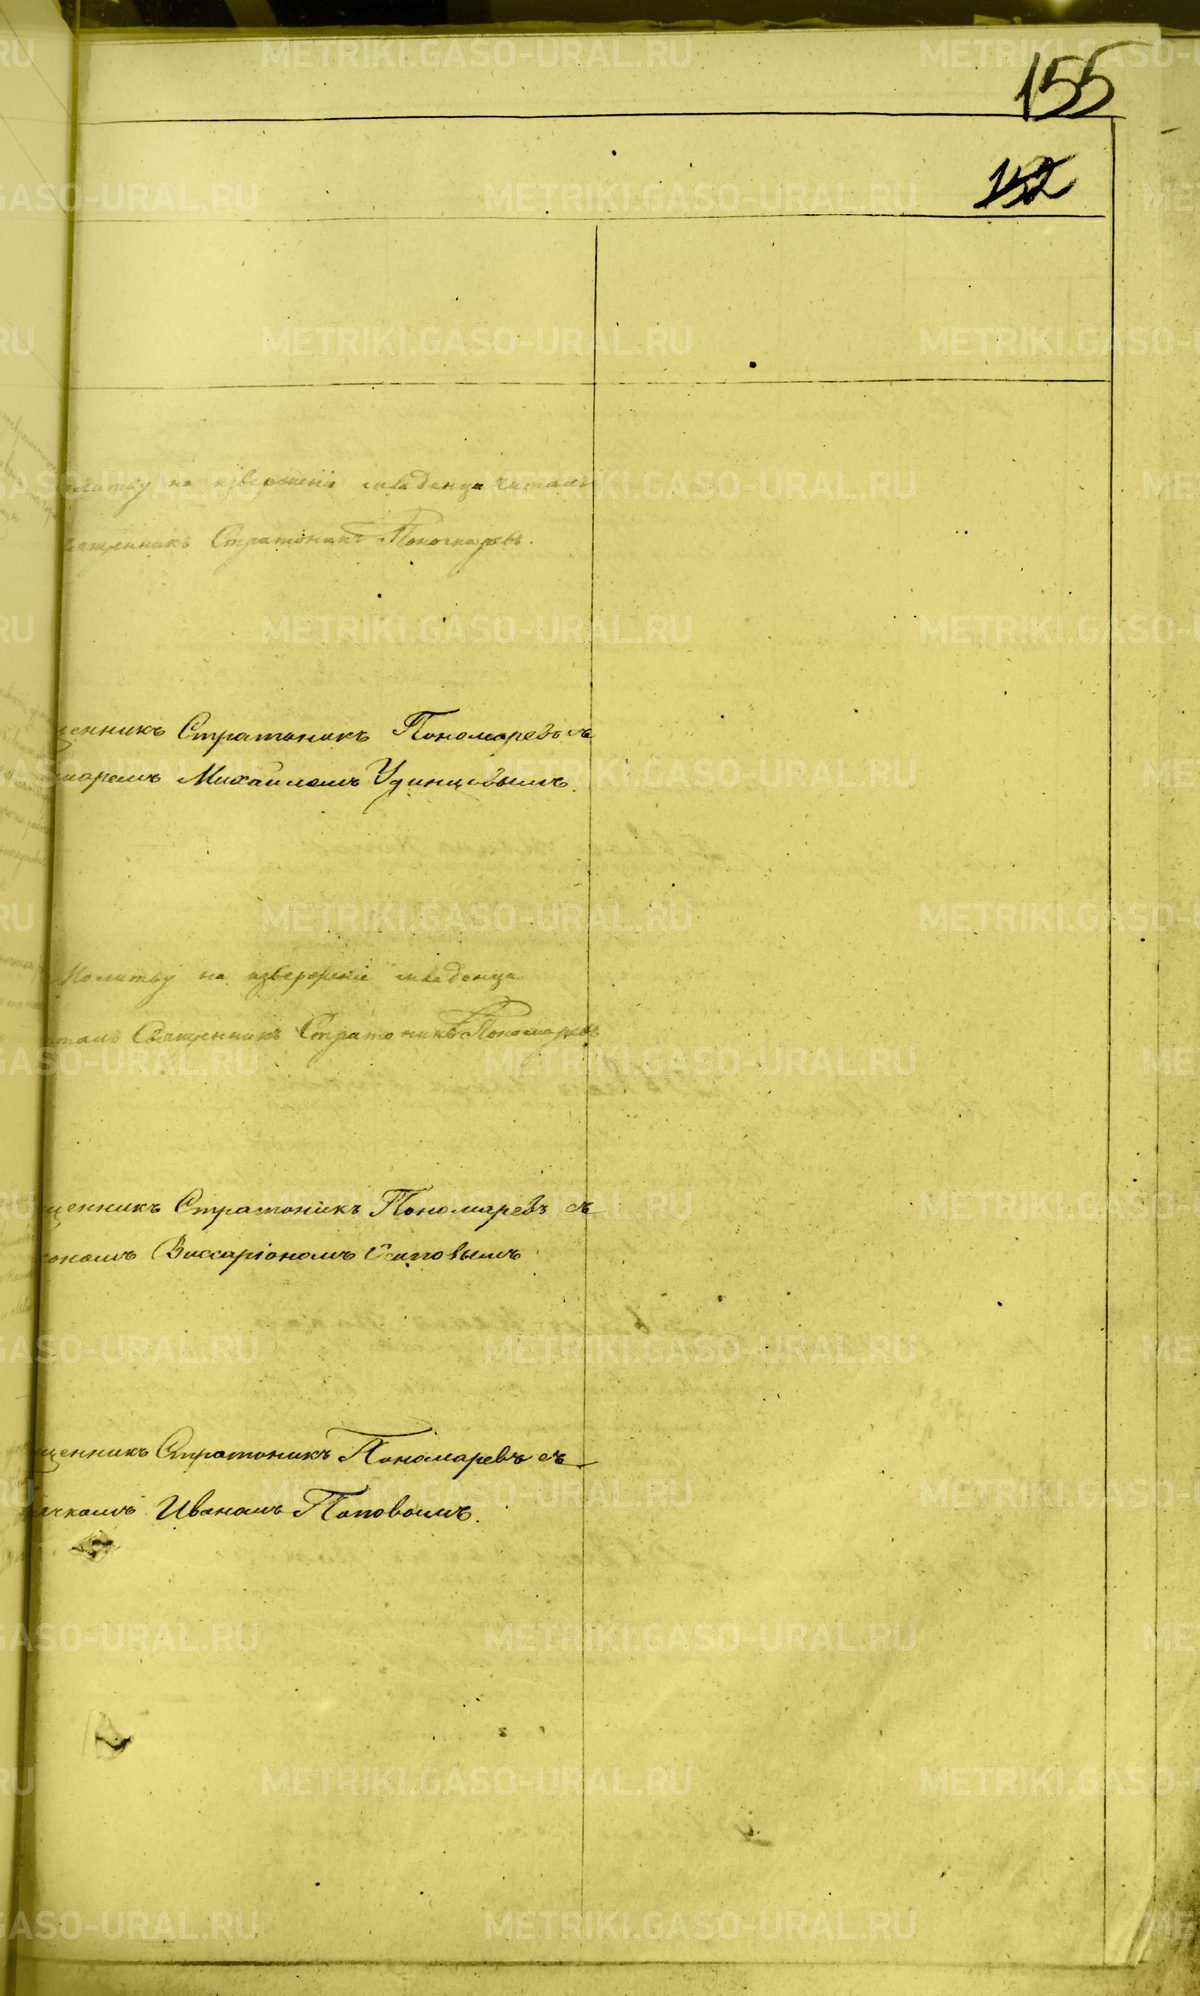 155
152
молитву на изверженіе младенца читалъ
священникъ Стратоникъ Пономаревъ.
щенникъ Стратоникъ Пономаревъ съ
маремъ Михаиломъ Удинцовымъ.
Молитву на изверженіе младенца
читалъ Священникъ Стратоникъ Пономаревъ
щенникъ Стратоникъ Пономаревъ съ
кономъ Виссаріономъ Сиповымъ
щенникъ Стратоникъ Пономаревъ съ
ячкомъ Иваномъ Поповымъ.
METRIKI.GASO-URAL.RU